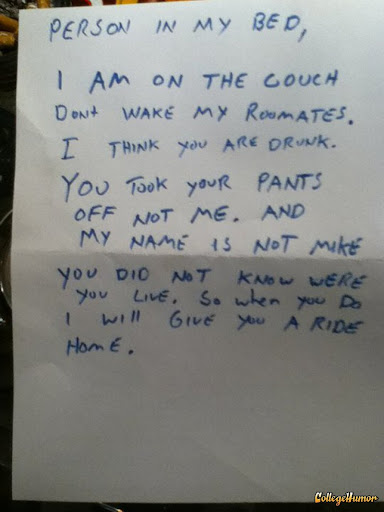 PERSON IN MY BED,
I AM ON THE COUCH
DONt WAKE MY ROOMATES.
I THINK YOU ARE DRUNK.
YOU TOOK YOUR PANTS
OFF NOT ME. AND
MY NAME IS NOT MIKE
YOU DID NOT KNOW WERE
YOU LIVE. SO WHEN YOU DO
I WILL GIVE YOU A RIDE
HOME.
CollegeHumor